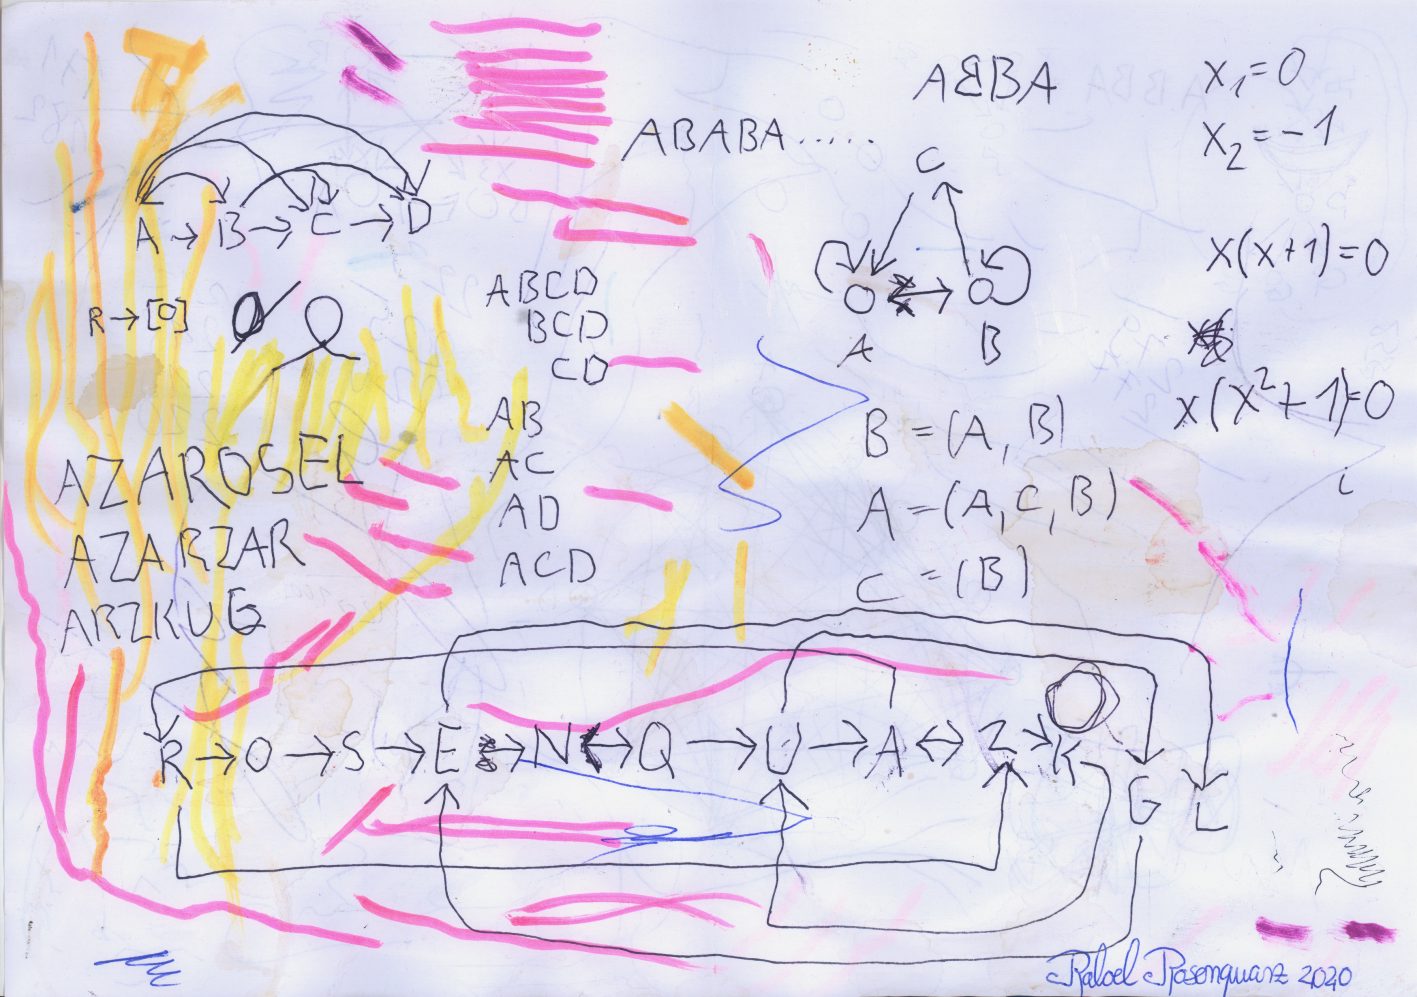 ABBA
x₁=0
ABABA.....
x₂=-1
C
A→B→C→D
x(x+1)=0
ABCD
R→[0]
BCD
A B
CD
x(x²+1)=0
AB
B=(A,B)
AZAROSEL
AC
i
AD
A=(A,C,B)
AZARZAR
ACD
C=(B)
ARZKUG
R→O→S→E→N↔Q→U→A↔Z→K
G L
Rafael Rosenquarz 2020